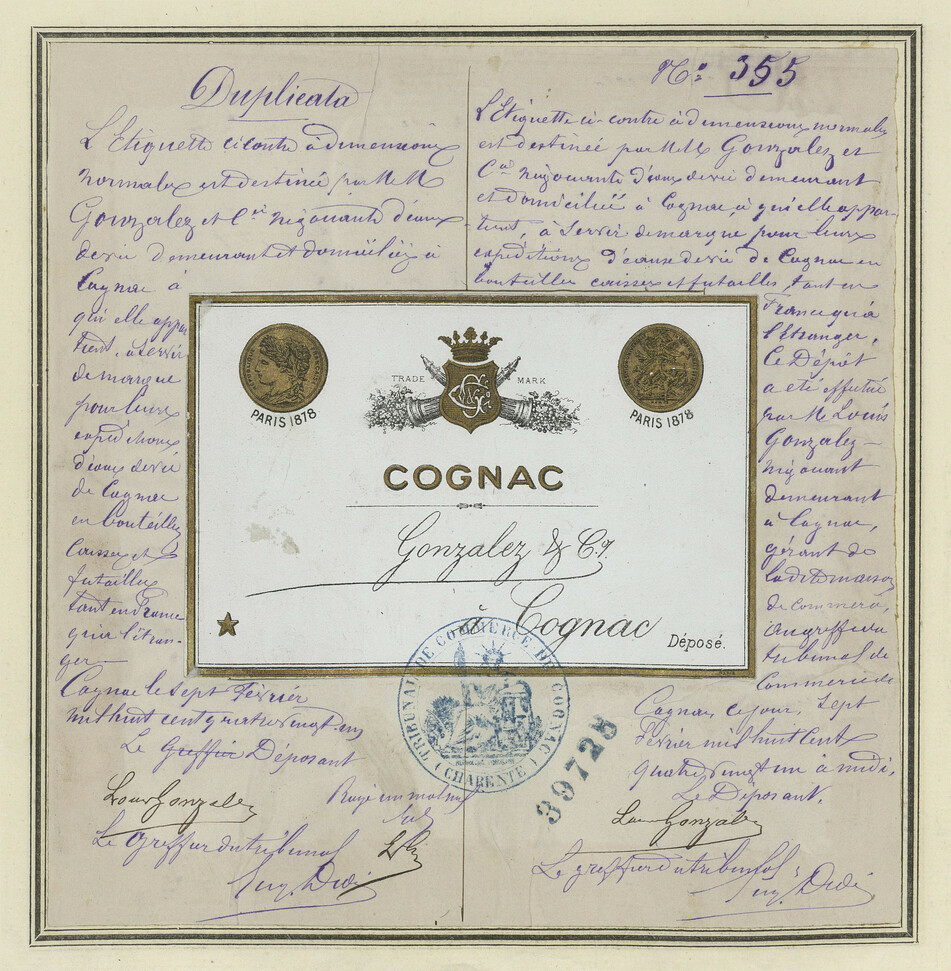 Duplicata
L'Etiquette ci contre à dimensions
normales est destinée par MM
Gonzalez et Cie négociants d'eaux
de vie demeurant et domiciliés à
Cognac à
qui elle appar
tient, à servir
de marque
pour leurs
expéditions
d'eaux de vie
de Cognac
en bouteilles
caisses et
futailles
tant en France
qu'à l'étran-
ger
Cognac le sept Février
mil huit cent quatre vingt un
Le Greffier Déposant
Louis Gonzalez
Rayé un mot nul
Le Greffier du tribunal
Eug. Didi
No: 355
L'Etiquette ci-contre à dimensions normales
est destinée par MM Gonzalez et
Cie négociants d'eaux de vie demeurant
et domiciliés à Cognac, à qui elle appar-
tient, à servir de marque pour leurs
expéditions d'eaux de vie de Cognac en
bouteilles caisses et futailles tant en
France qu'à
l'étranger,
Ce Dépôt
a été effectué
par M. Louis
Gonzalez
négociant
demeurant
à Cognac,
gérant de
la dite maison
de commerce,
au greffe du
tribunal de
Commerce de
Cognac, ce jour, sept
Février mil huit cent
quatre vingt un à midi.
Le Déposant,
Louis Gonzalez
Le greffier du tribunal
Eug. Didi
PARIS 1878
TRADE MARK
PARIS 1878
COGNAC
Gonzalez & Co,
Cognac
Déposé.
TRIBUNAL DE COMMERCE DE COGNAC
(CHARENTE)
39725